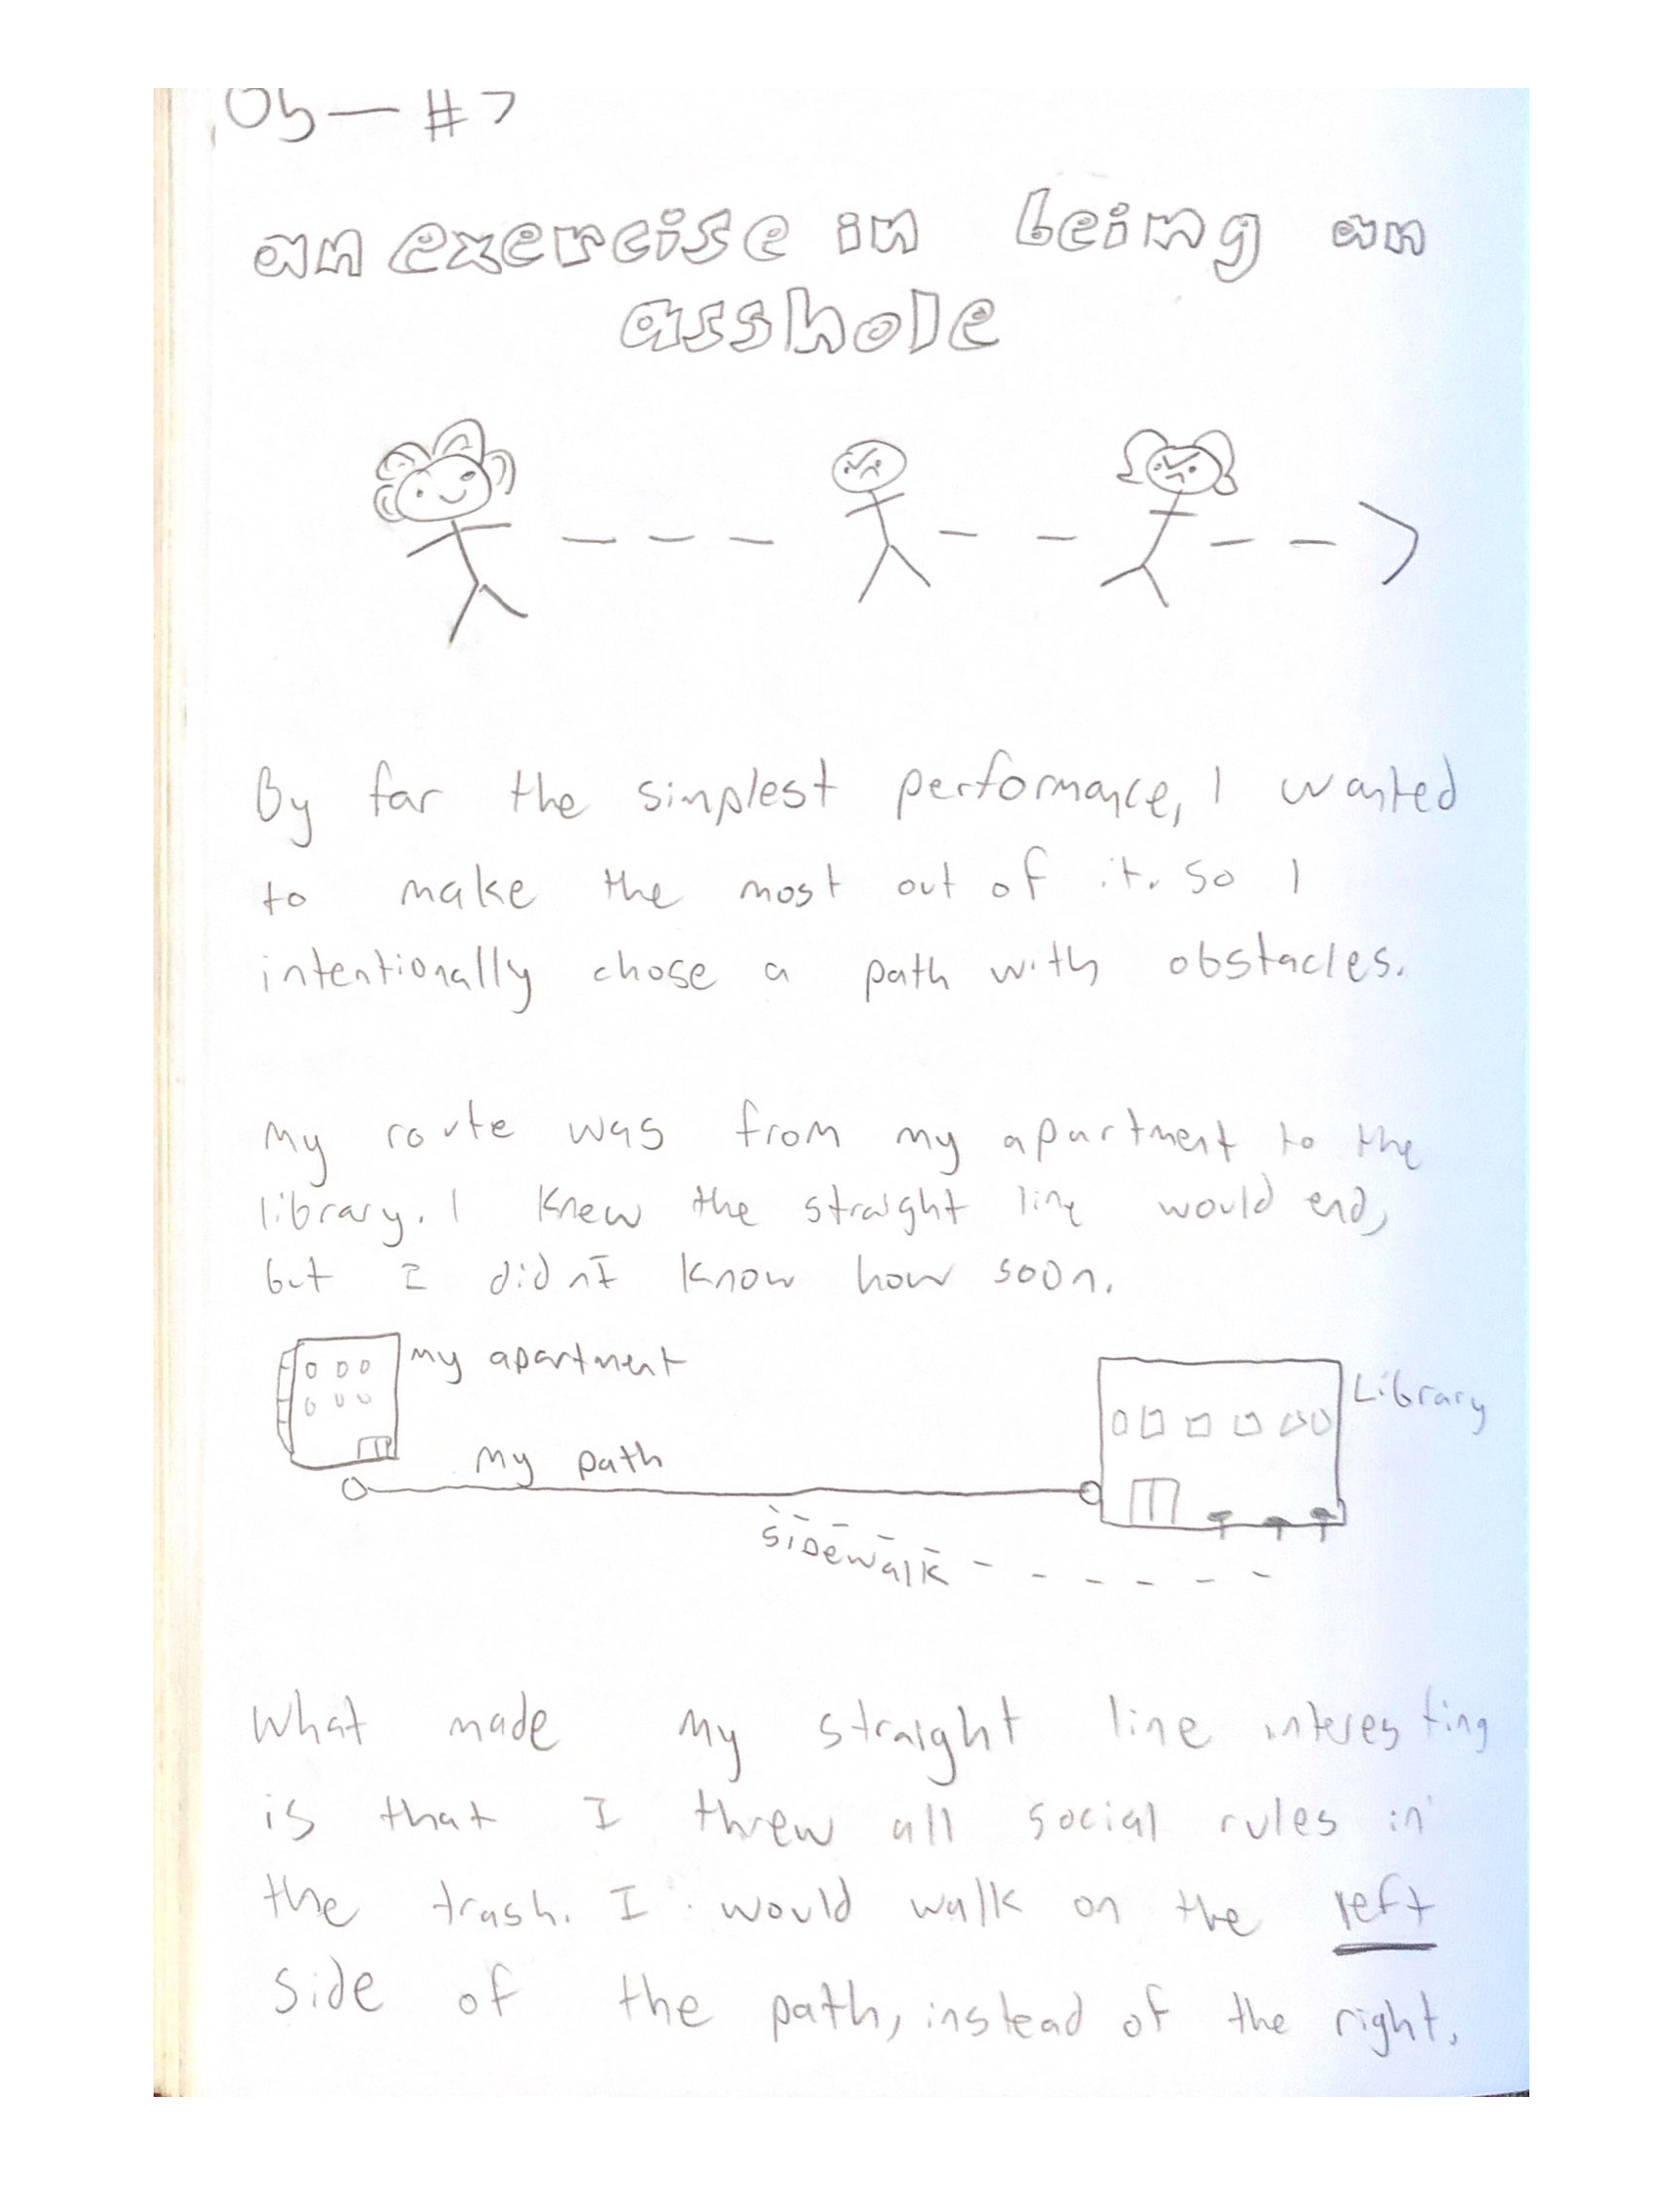 05 — #7
an exercise in being an
asshole
By far the simplest performance, I wanted
to make the most out of it. So I
intentionally chose a path with obstacles.
My route was from my apartment to the
library. I knew the straight line would end,
but I didn't know how soon.
My apartment
Library
My path
sidewalk
What made my straight line interesting
is that I threw all social rules in
the trash. I would walk on the left
side of the path, instead of the right.